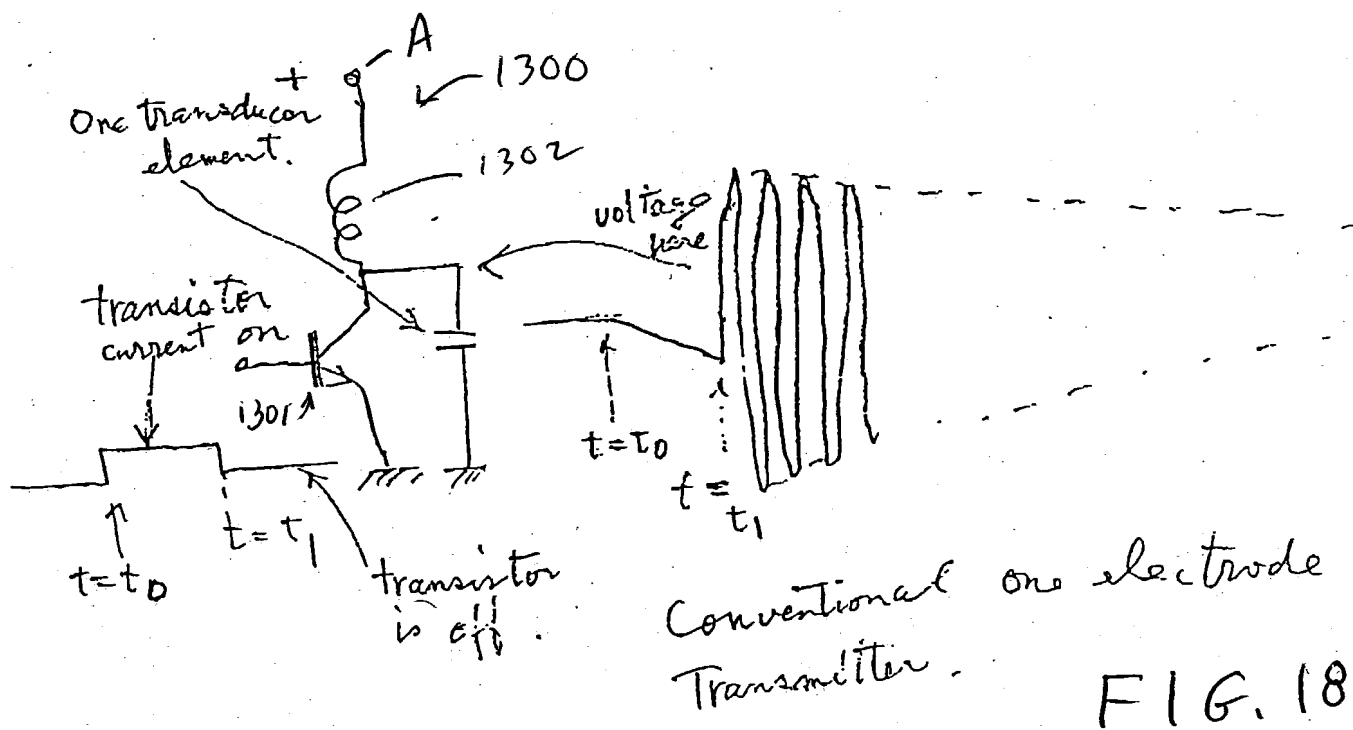 A
+
1300
One transducor
element.
1302
voltage
here
transistor
current on
1301
t=t0
t=t1
t=t0
t=
t1
transistor
is off.
Conventional one electrode
Transmitter.
FIG. 18